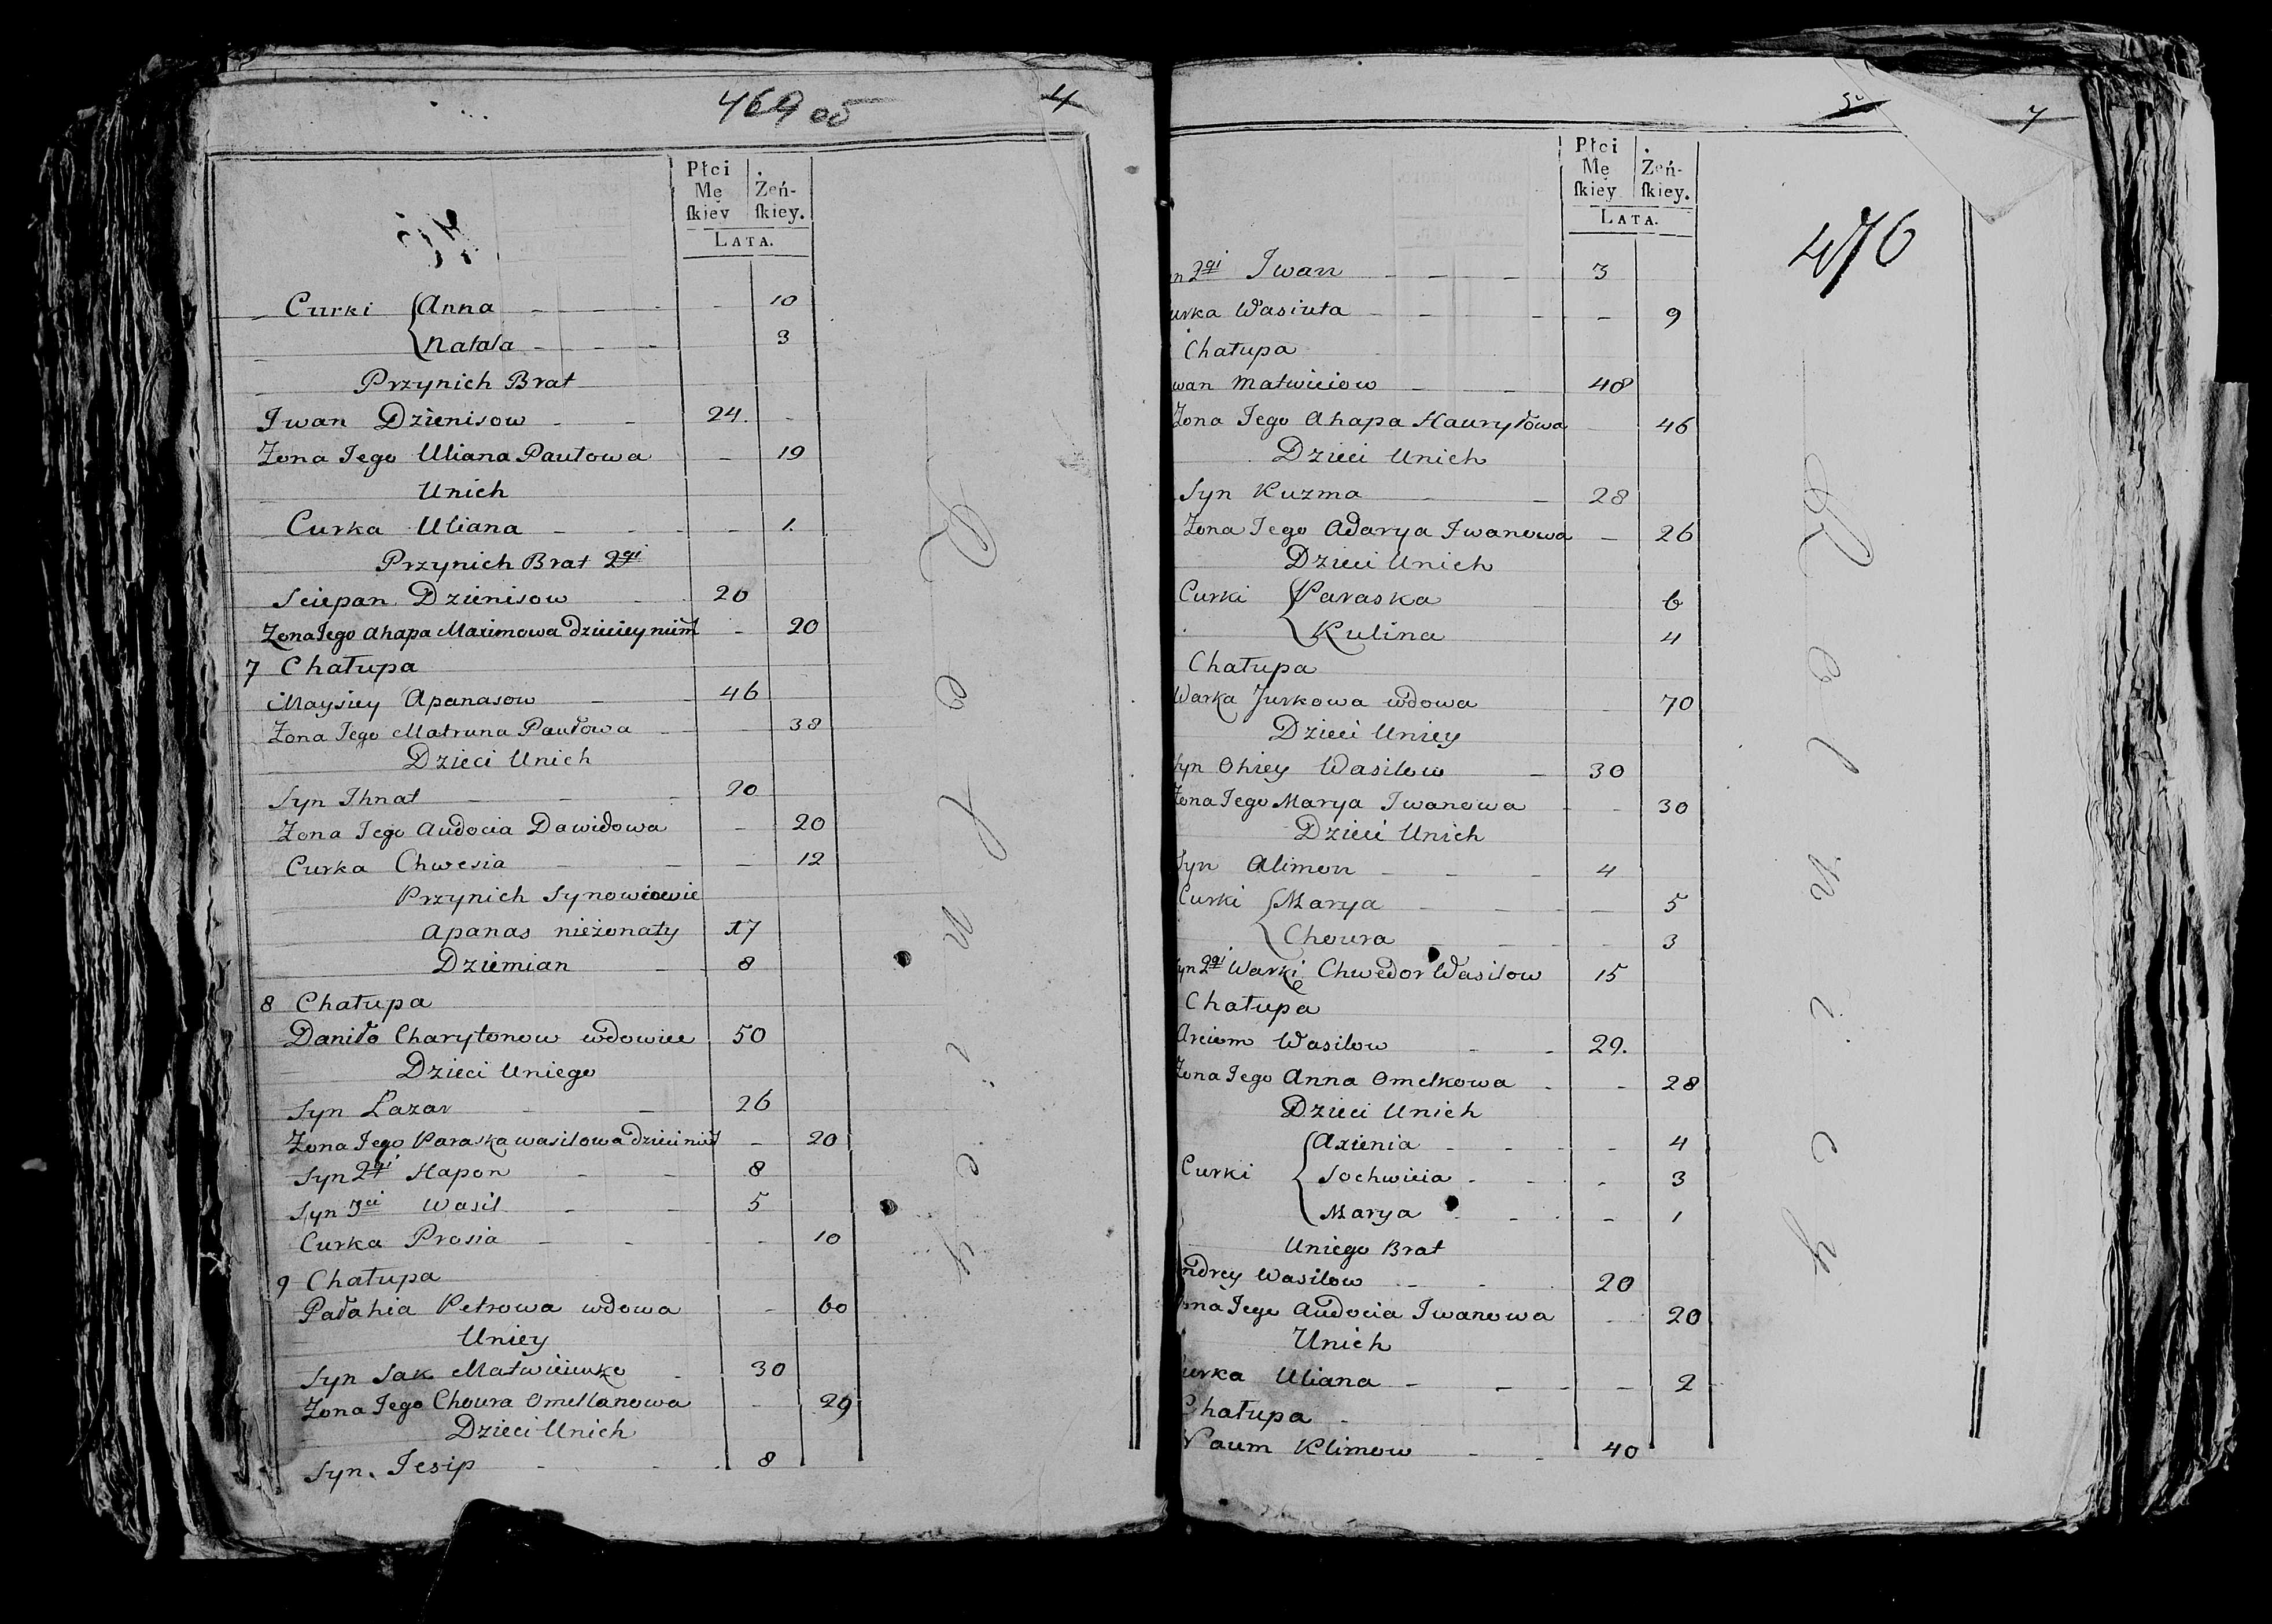 469 об
4
Płci Mę ſkiey
Żeń- ſkiey.
LATA.
Curki Anna - - - - - 10
Natala - - - 3
Przynich Brat
Iwan Dzienisow - - 24. -
Żona Jego Uliana Pautowa - 19
Unich
Curka Uliana - - - - 1.
Przynich Brat 2gi
Sciepan Dzienisow - 20
Żona Jego Ahapa Maximowa dzieciey niemt - 20
7 Chałupa
Maysiey Apanasow - - 46
Żona Jego Matruna Pawłowa - - 38
Dzieci Unich
Syn Ihnat - - - 20
Żona Jego Audocia Dawidowa - 20
Curka Chwesia - - - 12
Przynich Synowcowie
Apanas nieżonaty 17
Dziemian - 8
8 Chałupa
Daniło Charytonow wdowiec 50
Dzieci Uniego
Syn Łazar - - 26
Żona Jego Paraska wasilowa dzieci niet - 20
Syn 2gi Hapon - - 8
Syn 3ci Wasil - - 5
Curka Prosia - - - - 10
9 Chałupa
Pałahia Petrowa wdowa - 60
Uniey
Syn Sak Matwieienko - 30
Żona Jego Choura Omellanowa - 29
Dzieci Unich
Syn. Iesip - - - 8
R o l n i c y
5
7
476
Płci Mę ſkiey
Żeń- ſkiey.
LATA.
n 2gi Iwan - - - 3
urka Wasiuta - - - - - 9
Chałupa
wan Matwieiow - - 48
Żona Jego Ahapa Hauryłowa - 46
Dzieci Unich
Syn Kuzma - - 28
Żona Jego Adarya Iwanowa - 26
Dzieci Unich
Curki Paraska - 6
Kulina - 4
Chałupa
Warka Jurkowa wdowa - 70
Dzieci Uniey
Syn Ohrey Wasilow - 30
Żona Jego Marya Iwanowa - - 30
Dzieci Unich
Syn Alimon - - - 4
Curki Marya - - - - 5
Choura - - - - 3
yn 2gi Warki Chwedor Wasilow 15
Chałupa
Arciom Wasilow - - 29.
Żona Jego Anna Omelkowa - - 28
Dzieci Unich
Axienia - - - - 4
Curki Sochwieia - - - 3
Marya - - - 1
Uniego Brat
ndrey Wasilow - - 20
ona Jego Audocia Iwanowa - 20
Unich
urka Uliana - - - - 2
Chałupa -
Naum Klimow - - 40
R o l n i c y